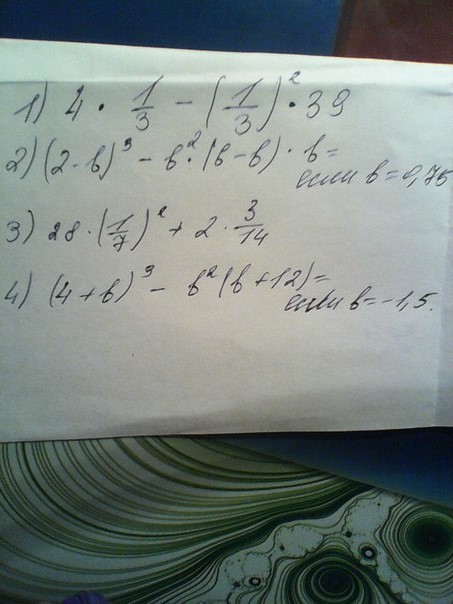 1) 4 · 1/3 − (1/3)² · 39
2) (2 - b)³ − b² · (b − b) · b =
если b = 0,75
3) 28 · (1/7)² + 2 · 3/14
4) (4 + b)³ − b² (b + 12) =
если b = −1,5.